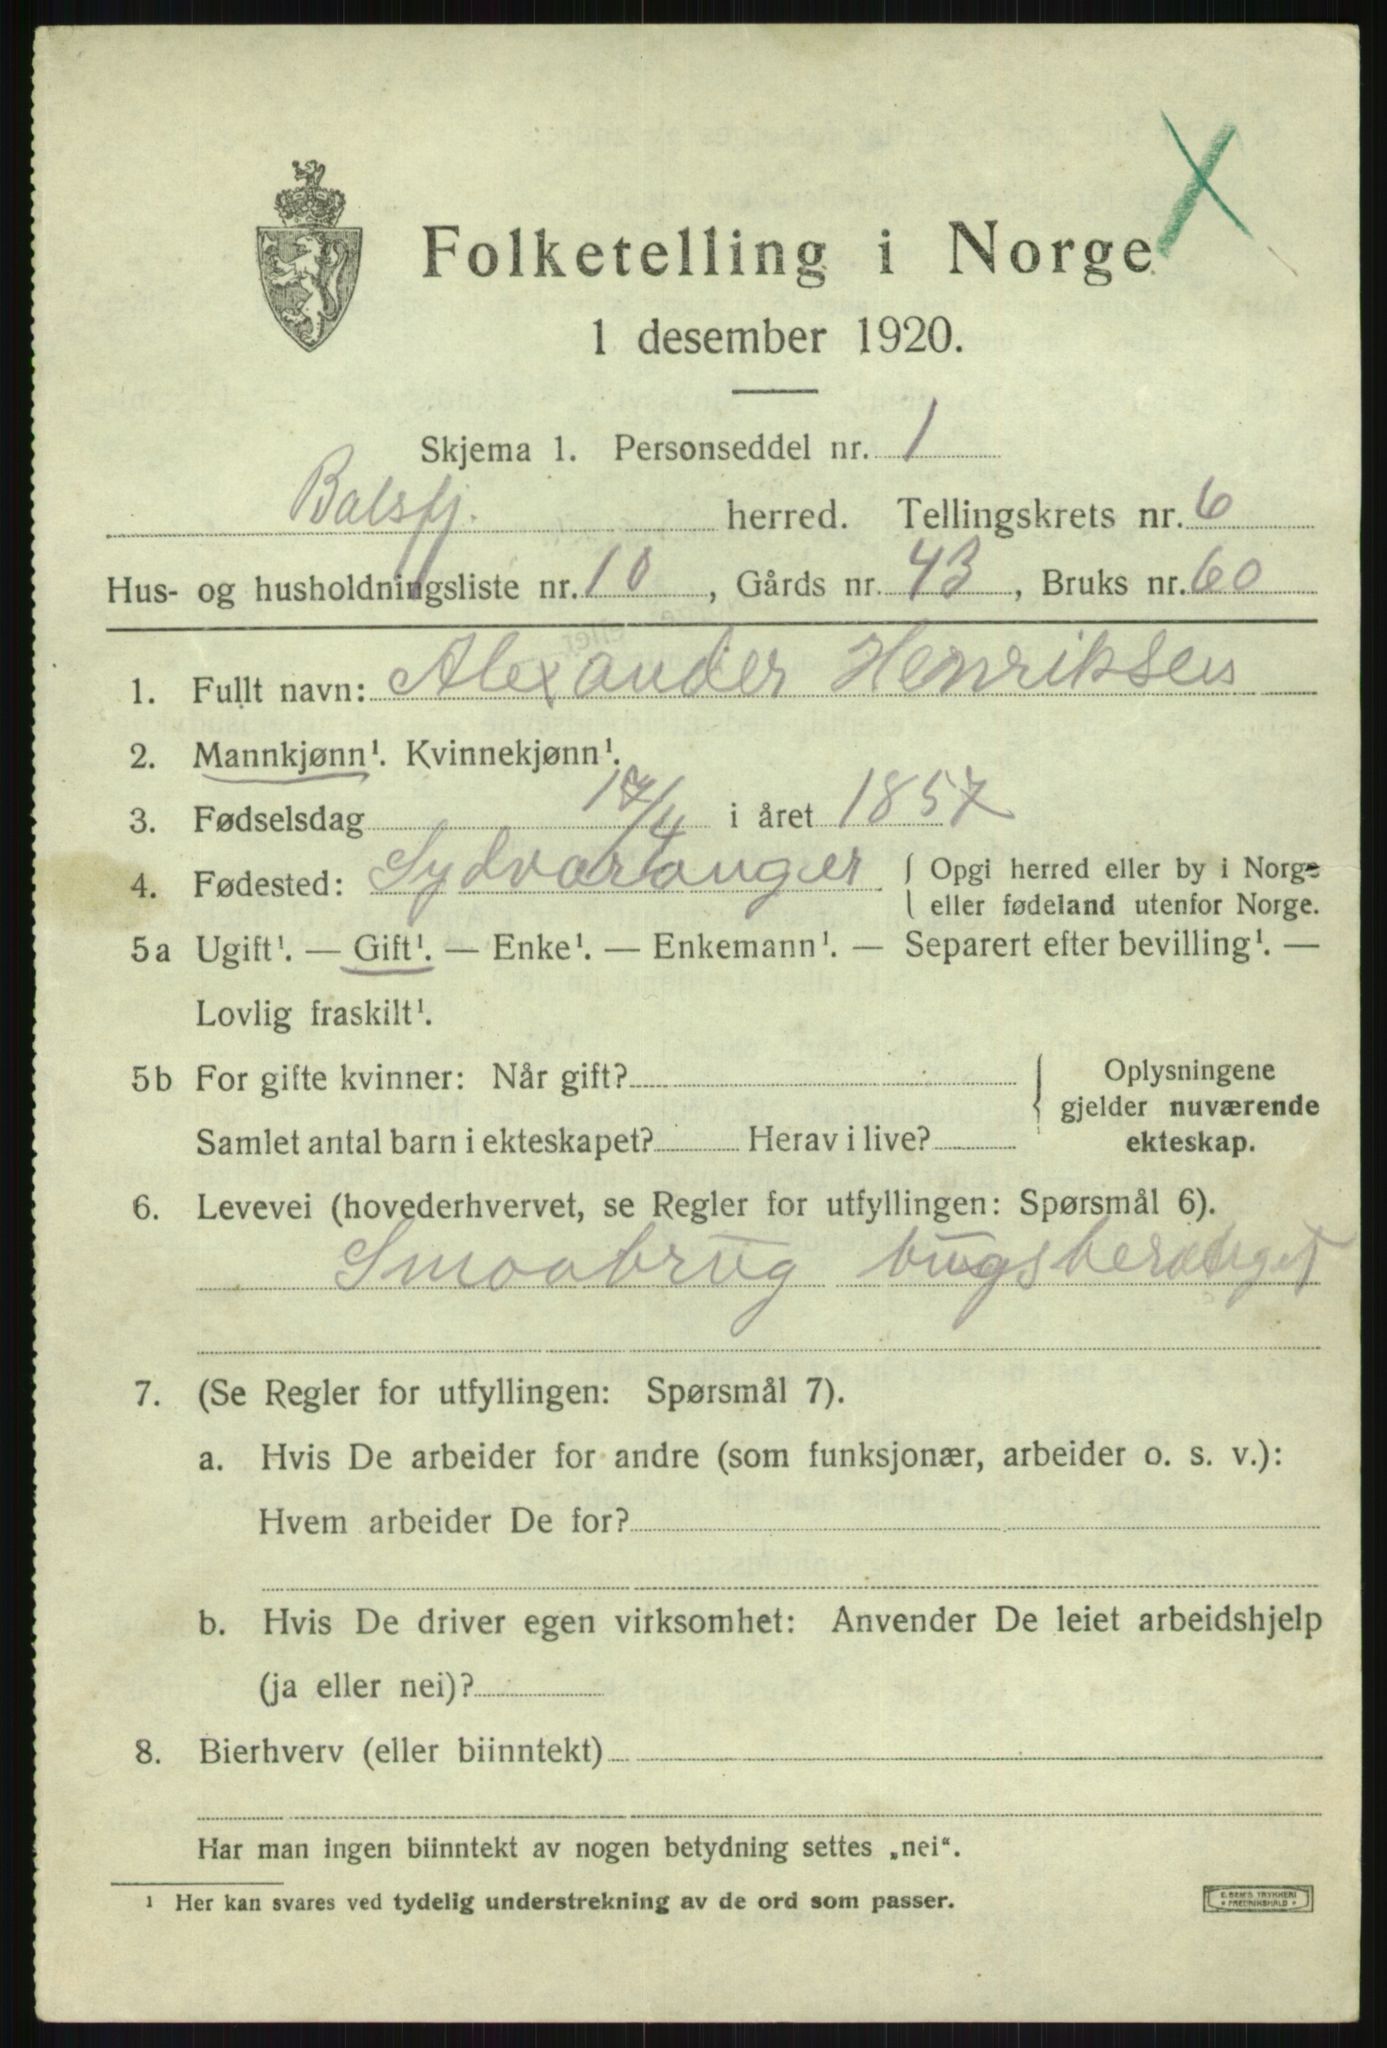 Folketelling i Norge
1 desember 1920.
Skjema 1. Personseddel nr. 1
Balsfj. herred. Tellingskrets nr. 6
Hus- og husholdningsliste nr. 10, Gårds nr. 43, Bruks nr. 60
1. Fullt navn: Alexander Henriksen
2. Mannkjønn¹. Kvinnekjønn¹.
3. Fødselsdag 17/4 i året 1857
4. Fødested: Sydvaranger { Opgi herred eller by i Norge
eller fødeland utenfor Norge.
5a Ugift¹. — Gift¹. — Enke¹. — Enkemann¹. — Separert efter bevilling¹. —
Lovlig fraskilt¹.
5b For gifte kvinner: Når gift? { Oplysningene
gjelder nuværende
Samlet antal barn i ekteskapet? Herav i live? ekteskap.
6. Levevei (hovederhvervet, se Regler for utfyllingen: Spørsmål 6).
Smaabrug
7. (Se Regler for utfyllingen: Spørsmål 7).
a. Hvis De arbeider for andre (som funksjonær, arbeider o. s. v.):
Hvem arbeider De for?
b. Hvis De driver egen virksomhet: Anvender De leiet arbeidshjelp
(ja eller nei)?
8. Bierhverv (eller biinntekt)
Har man ingen biinntekt av nogen betydning settes „nei“.
¹ Her kan svares ved tydelig understrekning av de ord som passer.
E. SEM'S TRYKKERI
FREDRIKSHALD